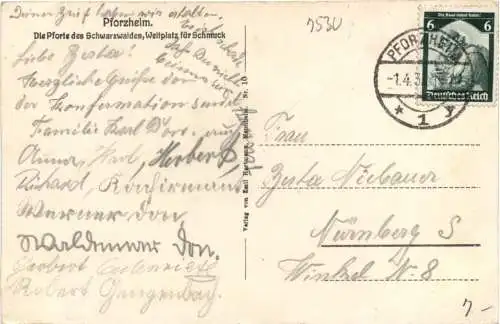 Deinen Brief haben wir erhalten.
Pforzheim.
Die Pforte des Schwarzwaldes, Weltplatz für Schmuck
Liebe Berta!
Herzliche Grüße von
der Konformation sendet
Familie Karl Dorr. auch
Anna, Karl, Herbert,
Richard, Konfirmand
Werner Don
Waldemar Don.
Herbert
Robert Gengenbach
Verlag von Emil Hartmann, Mannheim Nr. 10
7530
Die Saar kehrt heim!
6 6
Deutsches Reich
PFORZHEIM
-1.4.3
* 1 y
Frau
Berta Niebauer
Nürnberg S
Winkel N. 8
7-